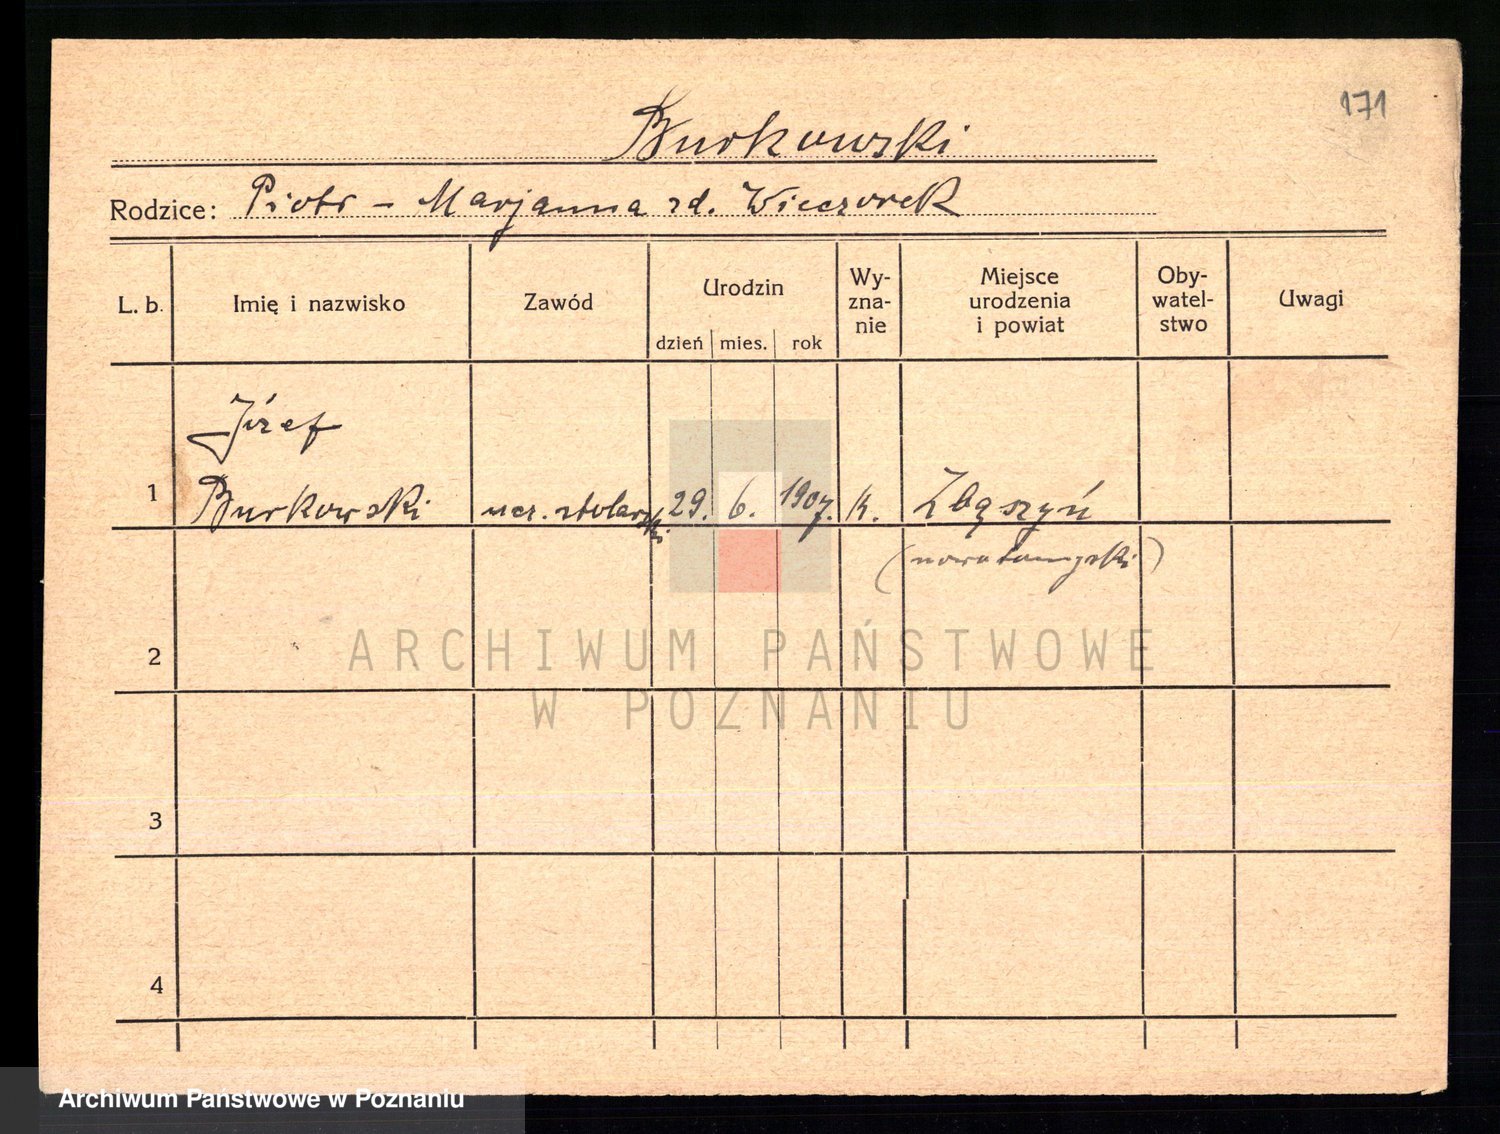 171
Burkowski
Rodzice: Piotr – Marjanna zd. Wieczorek
L. b. Imię i nazwisko Zawód Urodzin dzień mies. rok Wy-zna-nie Miejsce urodzenia i powiat Oby-watel-stwo Uwagi
Józef
1 Burkowski ucz. stolarski 29. 6. 1907. k. Zbąszyń
(nowotomyski)
2
ARCHIWUM PAŃSTWOWE
W POZNANIU
3
4
Archiwum Państwowe w Poznaniu